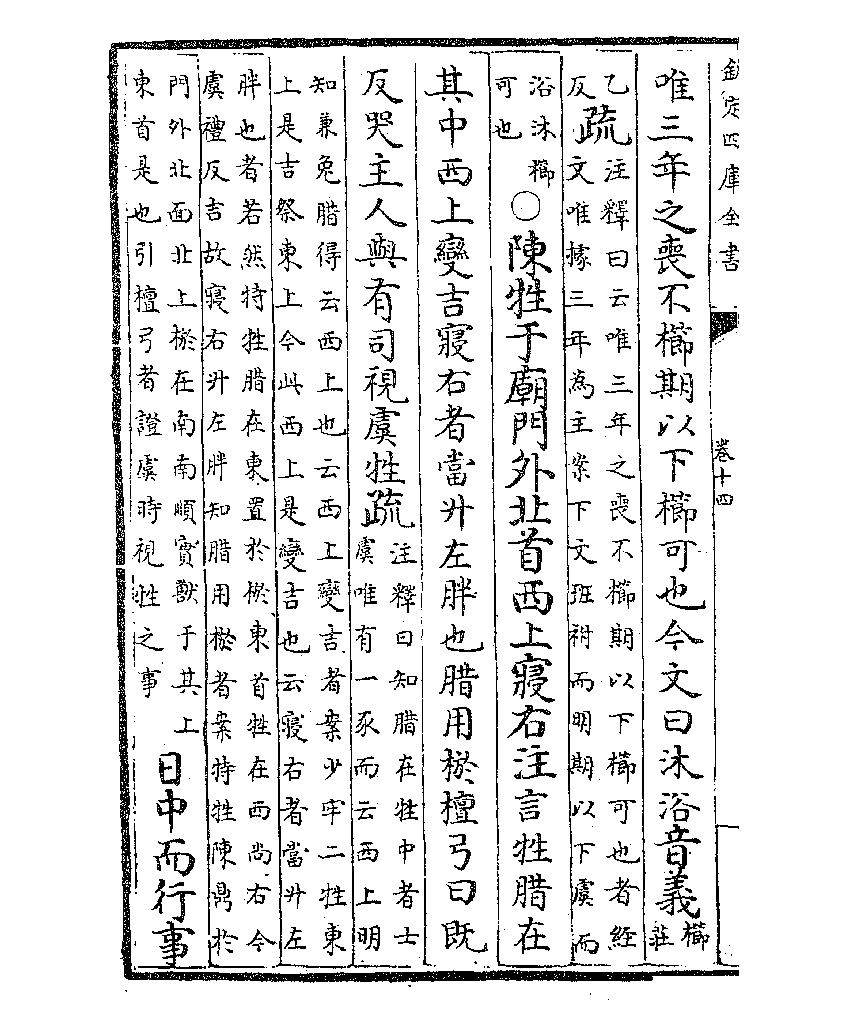 欽定四庫全書
卷十四
唯三年之喪不櫛期以下櫛可也今文曰沐浴音義櫛
莊
乙
反
疏注釋曰云唯三年之喪不櫛期以下櫛可也者經
文唯據三年為主案下文班祔而明期以下虞而
浴沐櫛
可也
○陳牲于廟門外北首西上寢右注言牲腊在
其中西上變吉寢右者當升左胖也腊用棜檀弓曰既
反哭主人與有司視虞牲疏注釋曰知腊在牲中者士
虞唯有一豕而云西上明
知兼兔腊得云西上也云西上變吉者案少牢二牲東
上是吉祭東上今此西上是變吉也云寢右者當升左
胖也者若然特牲腊在東置於棜東首牲在西尚右今
虞禮反吉故寢右升左胖知腊用棜者案特牲陳鼎於
門外北面北上棜在南南順實獸于其上
東首是也引檀弓者證虞時視牲之事
日中而行事